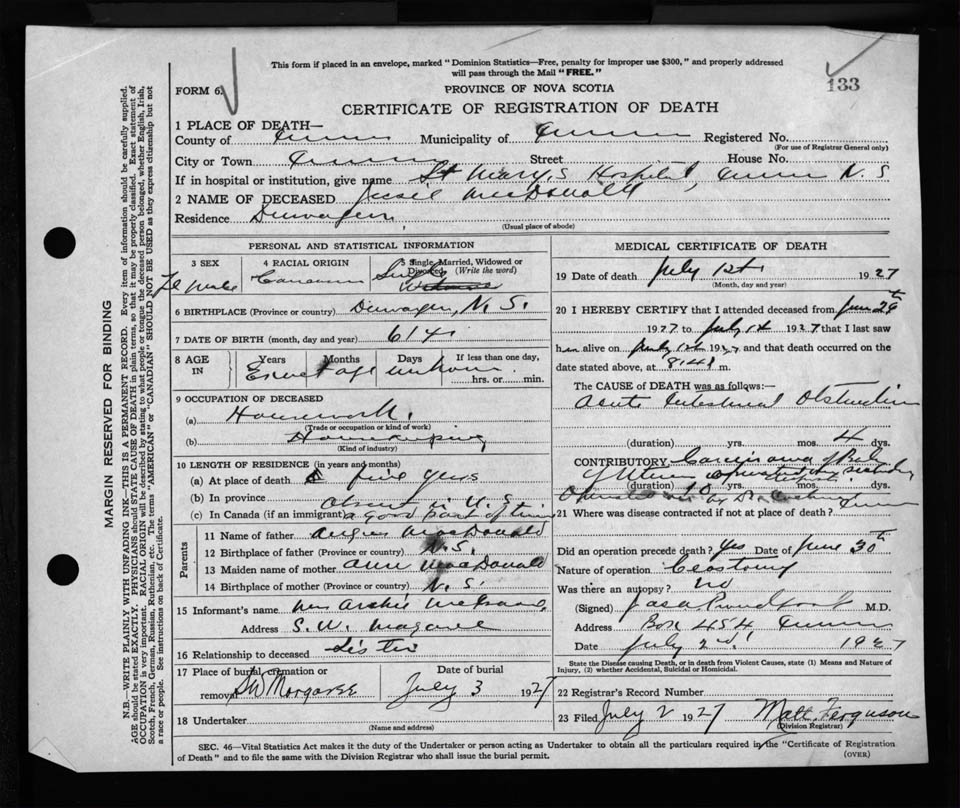 This form if placed in an envelope, marked "Dominion Statistics—Free, penalty for improper use $300," and properly addressed
will pass through the Mail "FREE."
133
FORM 6.
PROVINCE OF NOVA SCOTIA
CERTIFICATE OF REGISTRATION OF DEATH
1 PLACE OF DEATH—
County of Municipality of Registered No.
(For use of Registrar General only)
City or Town Street House No.
If in hospital or institution, give name St Mary's Hospital, N. S
2 NAME OF DECEASED Jessie MacDonald
Residence
(Usual place of abode)
PERSONAL AND STATISTICAL INFORMATION
3 SEX 4 RACIAL ORIGIN 5 Single, Married, Widowed or Divorced (Write the word)
Female Single
6 BIRTHPLACE (Province or country) N. S.
7 DATE OF BIRTH (month, day and year)
8 AGE IN Years Months Days If less than one day,
Exact age unknown hrs. or min.
9 OCCUPATION OF DECEASED
(a) Housework.
(Trade or occupation or kind of work)
(b) Housekeeping
(Kind of industry)
10 LENGTH OF RESIDENCE (in years and months)
(a) At place of death five years
(b) In province absent in U. S.
(c) In Canada (if an immigrant) a good part of time
Parents
11 Name of father Angus MacDonald
12 Birthplace of father (Province or country) N.S.
13 Maiden name of mother Ann MacDonald
14 Birthplace of mother (Province or country) N. S.
15 Informant's name Mrs Archie
Address S. W. Margaree
16 Relationship to deceased Sister
17 Place of burial, cremation or removal SW Margaree
Date of burial July 3 1927
18 Undertaker
(Name and address)
MEDICAL CERTIFICATE OF DEATH
19 Date of death July 1st 1927
(Month, day and year)
20 I HEREBY CERTIFY that I attended deceased from June 29th
1927 to July 1st 1927 that I last saw
her alive on July 1st 1927 and that death occurred on the
date stated above, at m.
The CAUSE of DEATH was as follows:—
Acute Intestinal Obstruction
(duration) yrs. mos. 4 dys.
CONTRIBUTORY Carcinoma of
(duration) yrs. mos. dys.
21 Where was disease contracted if not at place of death?
Did an operation precede death? Yes Date of June 30th
Nature of operation
Was there an autopsy? No
(Signed) M.D.
Address Box 454,
Date July 2nd. 1927
State the Disease causing Death, or in death from Violent Causes, state (1) Means and Nature of
Injury, (2) whether Accidental, Suicidal or Homicidal.
22 Registrar's Record Number
23 Filed July 2 1927 Matt. Ferguson
(Division Registrar)
SEC. 46—Vital Statistics Act makes it the duty of the Undertaker or person acting as Undertaker to obtain all the particulars required in the "Certificate of Registration
of Death" and to file the same with the Division Registrar who shall issue the burial permit.
(OVER)
MARGIN RESERVED FOR BINDING
N.B.—WRITE PLAINLY WITH UNFADING INK—THIS IS A PERMANENT RECORD. Every item of information should be carefully supplied.
AGE should be stated EXACTLY. PHYSICIANS should state CAUSE OF DEATH in plain terms, so that it may be properly classified. Exact statement of
OCCUPATION is very important. RACIAL ORIGIN will be described by stating to what people or tongue the deceased person belonged, whether English, Irish,
Scotch, French, German, Russian, Ruthenian, etc. The terms "AMERICAN" or "CANADIAN" SHOULD NOT BE USED as they express citizenship but not
a race or people. See instructions on back of Certificate.